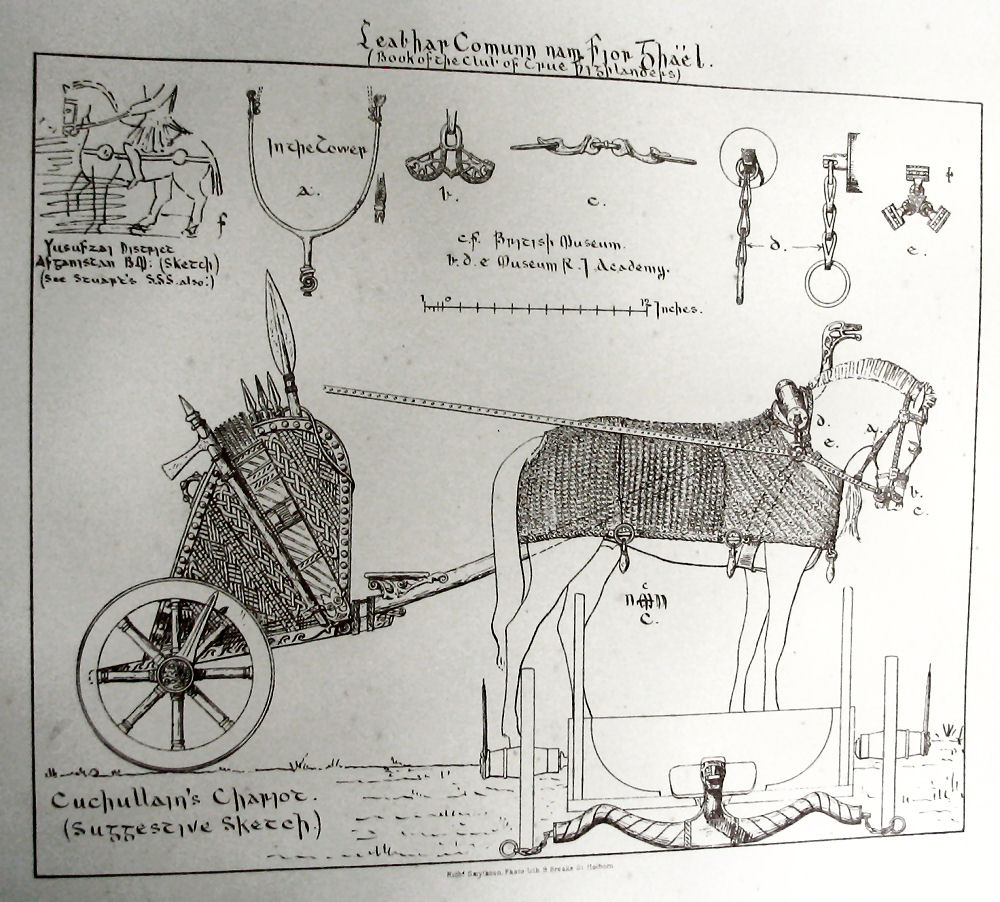 Leabhar Comunn nam Fjor Ghaël.
(Book of the Club of True Highlanders)
In the Tower
a.
b.
c.
d.
e.
f
f
Yusufzai District
Afganistan B.M: (Sketch)
(See Stuart's S.S.S. also:)
c.f. British Museum.
b. d. e Museum R. I Academy.
1 0 12 Inches.
d.
e.
a.
b.
c.
c
C.
Cuchullain's Chariot.
(Suggestive Sketch.)
Photo-lith